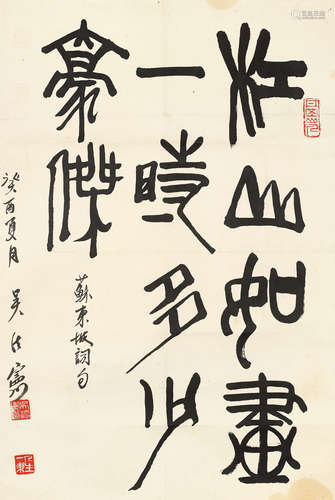 江山如畫
一時多少
豪傑
蘇東坡詞句
癸酉夏月 吳法憲